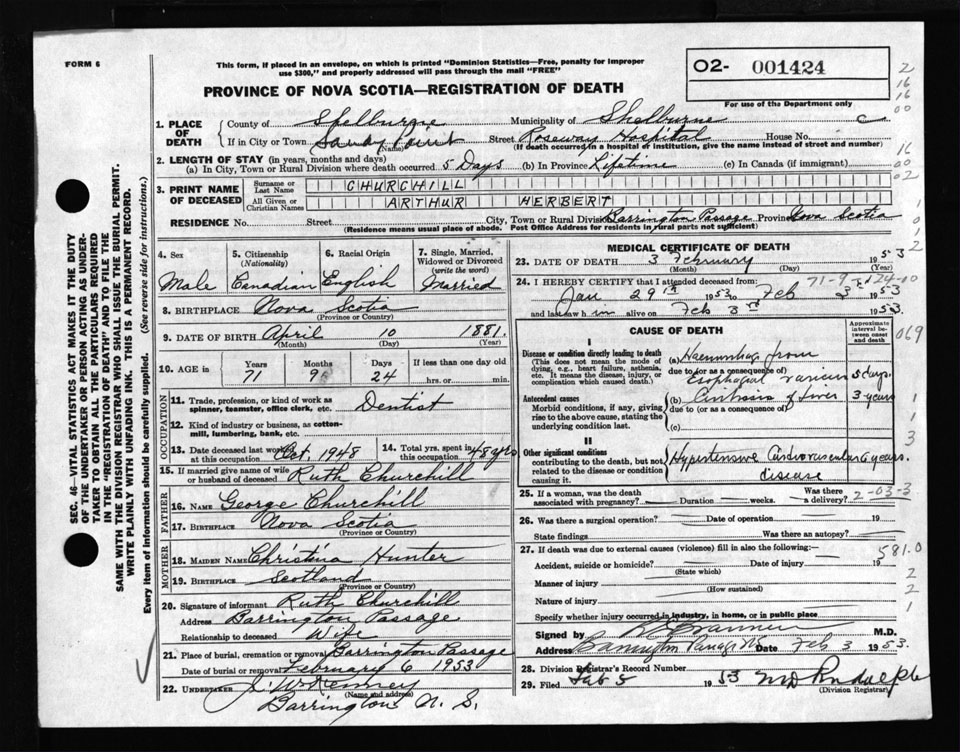 FORM 6
This form, if placed in an envelope, on which is printed "Dominion Statistics—Free, penalty for improper
use $300," and properly addressed will pass through the mail "FREE"
O2- 001424
PROVINCE OF NOVA SCOTIA—REGISTRATION OF DEATH
For use of the Department only
1. PLACE OF DEATH
County of Shelburne Municipality of Shelburne
If in City or Town Sandy Point Street Roseway Hospital House No.
(Name) (If death occurred in a hospital or institution, give the name instead of street and number)
2. LENGTH OF STAY (in years, months and days)
(a) In City, Town or Rural Division where death occurred 5 Days (b) In Province Lifetime (c) In Canada (if immigrant)
3. PRINT NAME OF DECEASED
Surname or Last Name CHURCHILL
All Given or Christian Names ARTHUR HERBERT
RESIDENCE No. Street City, Town or Rural Division Barrington Passage Province Nova Scotia
(Residence means usual place of abode. Post Office Address for residents in rural parts not sufficient)
4. Sex Male
5. Citizenship (Nationality) Canadian
6. Racial Origin English
7. Single, Married, Widowed or Divorced (write the word) Married
8. BIRTHPLACE Nova Scotia
(Province or Country)
9. DATE OF BIRTH April 10 1881
(Month) (Day) (Year)
10. AGE IN Years 71 Months 9 Days 24 If less than one day old hrs. or min.
OCCUPATION
11. Trade, profession, or kind of work as
spinner, teamster, office clerk, etc. Dentist
12. Kind of industry or business, as cotton-
mill, lumbering, bank, etc.
13. Date deceased last worked at this occupation Oct. 1948
14. Total yrs. spent in this occupation 48 yrs
15. If married give name of wife
or husband of deceased Ruth Churchill
FATHER
16. NAME George Churchill
17. BIRTHPLACE Nova Scotia
(Province or Country)
MOTHER
18. MAIDEN NAME Christina Hunter
19. BIRTHPLACE Scotland
(Province or Country)
20. Signature of informant Ruth Churchill
Address Barrington Passage
Relationship to deceased Wife
21. Place of burial, cremation or removal Barrington Passage
Date of burial or removal February 6 1953
22. UNDERTAKER
(Name and address)
Barrington N. S.
MEDICAL CERTIFICATE OF DEATH
23. DATE OF DEATH 3 February 1953
(Month) (Day) (Year)
71-9-24-10
24. I HEREBY CERTIFY that I attended deceased from:
Jan 29th 1953 to Feb 3rd 1953
and last saw him alive on Feb 3rd 1953.
CAUSE OF DEATH
Approximate interval between onset and death
I
Disease or condition directly leading to death
(This does not mean the mode of
dying, e.g., heart failure, asthenia,
etc. It means the disease, injury, or
complication which caused death.)
(a) Haemorrhage from
due to (or as a consequence of)
Esophageal varices 5 days.
Antecedent causes
Morbid conditions, if any, giving
rise to the above cause, stating the
underlying condition last.
(b) Cirrhosis of Liver 3 years
due to (or as a consequence of)
(c)
II
Other significant conditions
contributing to the death, but not
related to the disease or condition
causing it.
Hypertensive Cardiovascular 6 years.
disease
25. If a woman, was the death
associated with pregnancy? Duration weeks. Was there a delivery?
2-03-3
26. Was there a surgical operation? Date of operation 19
State findings Was there an autopsy?
27. If death was due to external causes (violence) fill in also the following:—
581.0
Accident, suicide or homicide? Date of injury 19
(State which)
Manner of injury
(How sustained)
Nature of injury
Specify whether injury occurred in industry, in home, or in public place
Signed by M.D.
Address Barrington Passage NS Date Feb 3 1953.
28. Division Registrar's Record Number
29. Filed Feb 5 1953
(Division Registrar)
SEC. 46—VITAL STATISTICS ACT MAKES IT THE DUTY
OF THE UNDERTAKER OR PERSON ACTING AS UNDER-
TAKER TO OBTAIN ALL THE PARTICULARS REQUIRED
IN THE "REGISTRATION OF DEATH" AND TO FILE THE
SAME WITH THE DIVISION REGISTRAR WHO SHALL ISSUE THE BURIAL PERMIT.
WRITE PLAINLY WITH UNFADING INK. THIS IS A PERMANENT RECORD.
Every item of information should be carefully supplied. (See reverse side for instructions.)
2
16
16
00
16
00
02
069
1
1
3
2
2
1